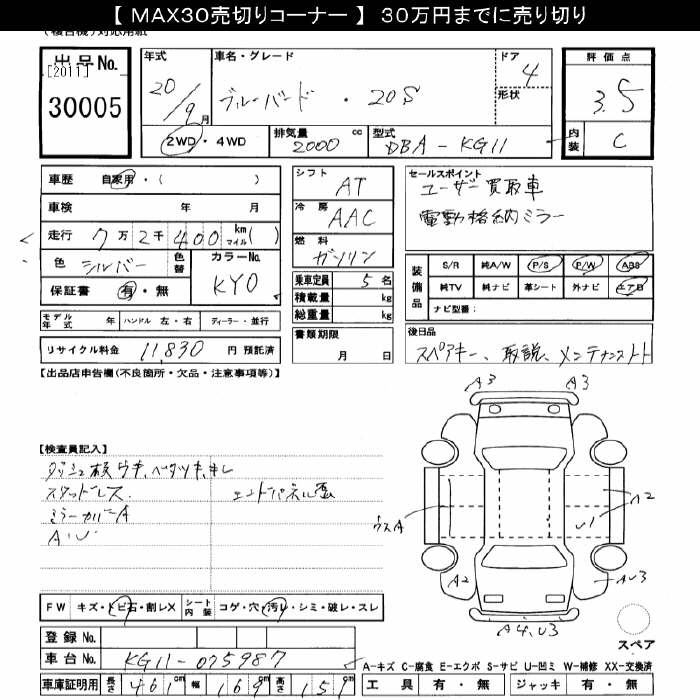 【 MAX30売切りコーナー 】 30万円までに売り切り
出品No.
[2011]
30005
年式
20/9月
車名・グレード
ブルーバード・20S
ドア
4
形状
評価点
3.5
内装
C
2WD・4WD
排気量
2000 cc
型式
DBA-KG11
車歴 自家用・( )
車検 年 月
走行 7万2千400 km(マイル)
色 シルバー
色替
カラーNo.
KY0
保証書 有・無
シフト
AT
冷房
AAC
燃料
ガソリン
乗車定員 5名
積載量 kg
総重量 kg
セールスポイント
ユーザー買取車
電動格納ミラー
装備品
S/R 純A/W P/S P/W ABS
純TV 純ナビ 革シート 外ナビ エアB
ナビ型番:
モデル年式 年 ハンドル 左・右 ディーラー・並行
リサイクル料金 11,830 円 預託済
書類期限
月 日
後日品
スペアキー、取説、メンテナンスノート
【出品店申告欄(不良箇所・欠品・注意事項等)】
【検査員記入】
ダッシュ板ウキ、ベタツキ、キレ
スタッドレス
エンドパネル歪
ミラーカバーA
A・U
A3
A3
ウスA
A2
U1
A2
AU3
A4,U3
スペア
FW キズ・トビ石・割レX シート内装 コゲ・穴・汚レ・シミ・破レ・スレ
登録No.
車台No. KG11-075987
車庫証明用 長さ 461cm 幅 169cm 高さ 151
A-キズ C-腐食 E-エクボ S-サビ U-凹ミ W-補修 XX-交換済
工具 有・無 ジャッキ 有・無